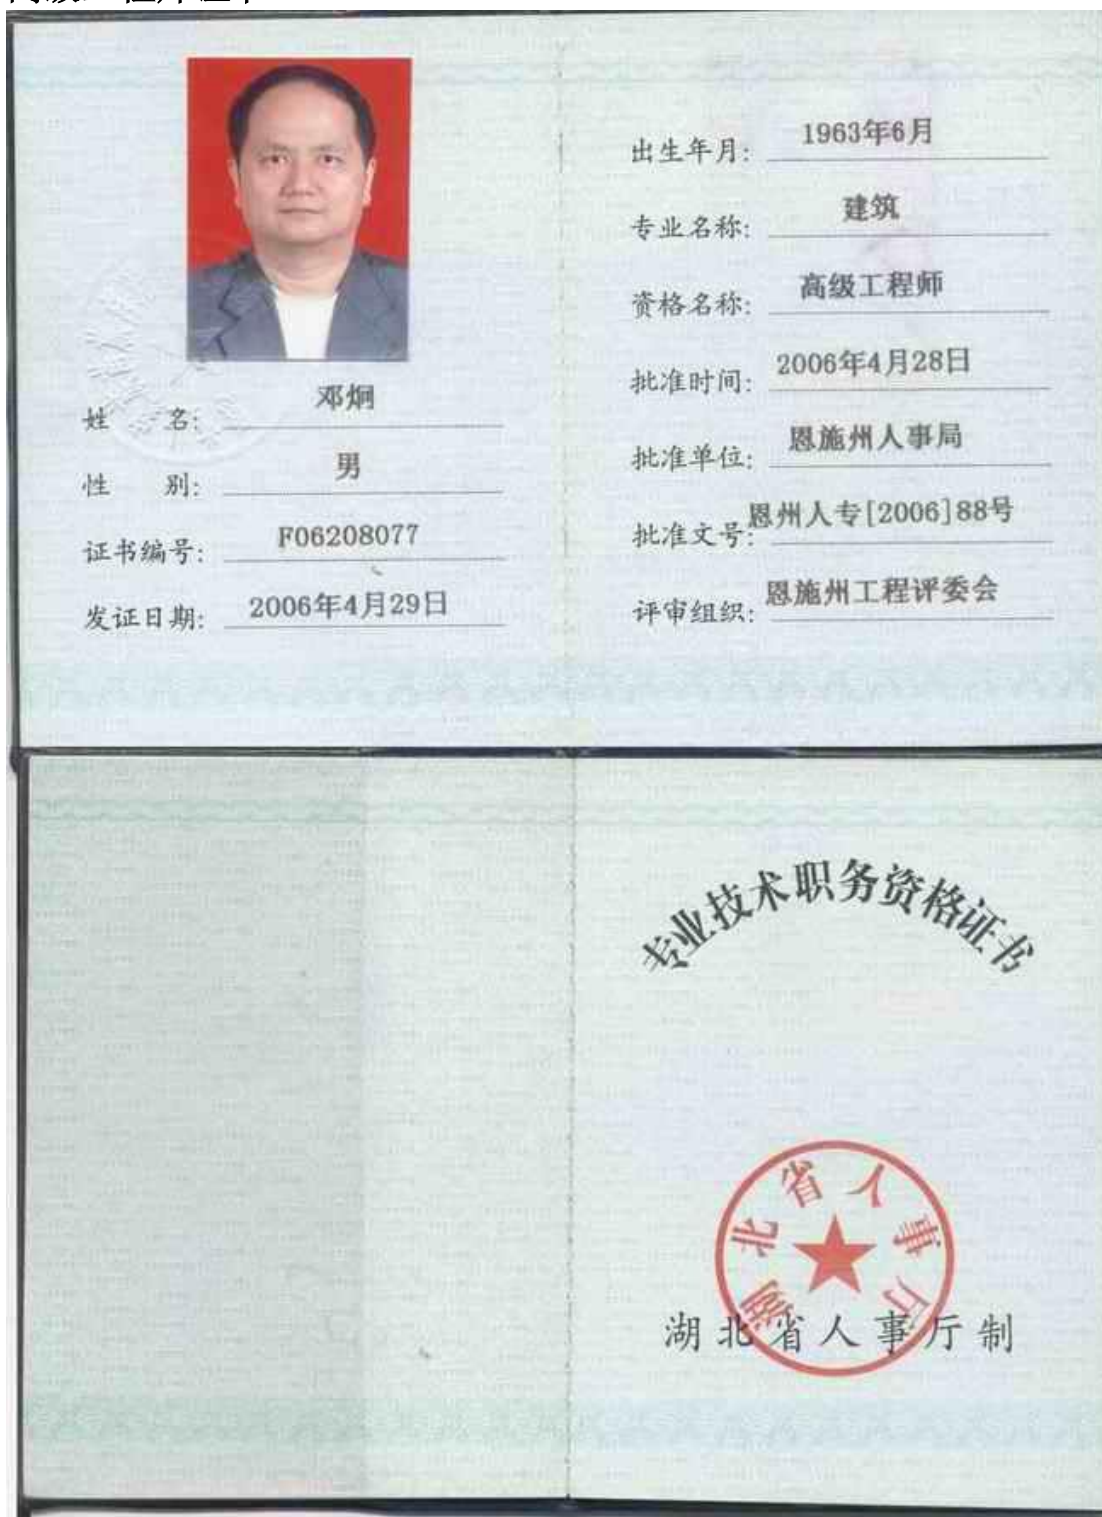 邓炯
姓 名:
男
性 别:
证书编号: F06208077
发证日期: 2006年4月29日
出生年月: 1963年6月
专业名称: 建筑
资格名称: 高级工程师
批准时间: 2006年4月28日
批准单位: 恩施州人事局
批准文号: 恩州人专[2006]88号
评审组织: 恩施州工程评委会
专业技术职务资格证书
湖北省人事厅
湖北省人事厅制